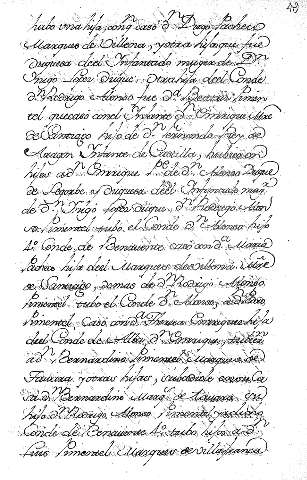 hubo una hija, con q casó dn Diego Pacheco
Marques de Villena, y otra hija que fue
Duquesa del Infantado muger de Dn
Iñigo Lopez Duque, otra hija del Conde
dn Rodrigo Alonso fue da Beatriz Pimen
tel que casó con el Infante dn Enrrique Mre
de Santiago hijo de dn Fernando Rey de
Aragon Infante de Castilla, hubieron
hijos a dn Enrrique 1o de dn Alonso Duque
de Segorbe y Duquesa del Infantado mug.
de dn Iñigo Lopez Duque, dn Rodrigo Alon
so Pimentel hubo el Conde dn Alonso hijo
4o Conde de Benavente casó con da Maria
Pacheco hija del Marques de Villena Mre
de Santiago, demas de dn Rodrigo Alonso
Pimentel hubo el Conde dn Alonso, a dn
Pimentel Casó con da Theresa Enrriquez hija
del Conde de Alba dn Enrrique,
a dn Bernardino Pimentel Marques de
Tavara, y otras hijas, en su Ca
sa dn Bernardino Marq. de Tavara, su
hijo dn Rodrigo Alonso Pimentel
Conde de Benavente 4o hubo hijos a dn
Luis Pimentel Marques de Villafranca